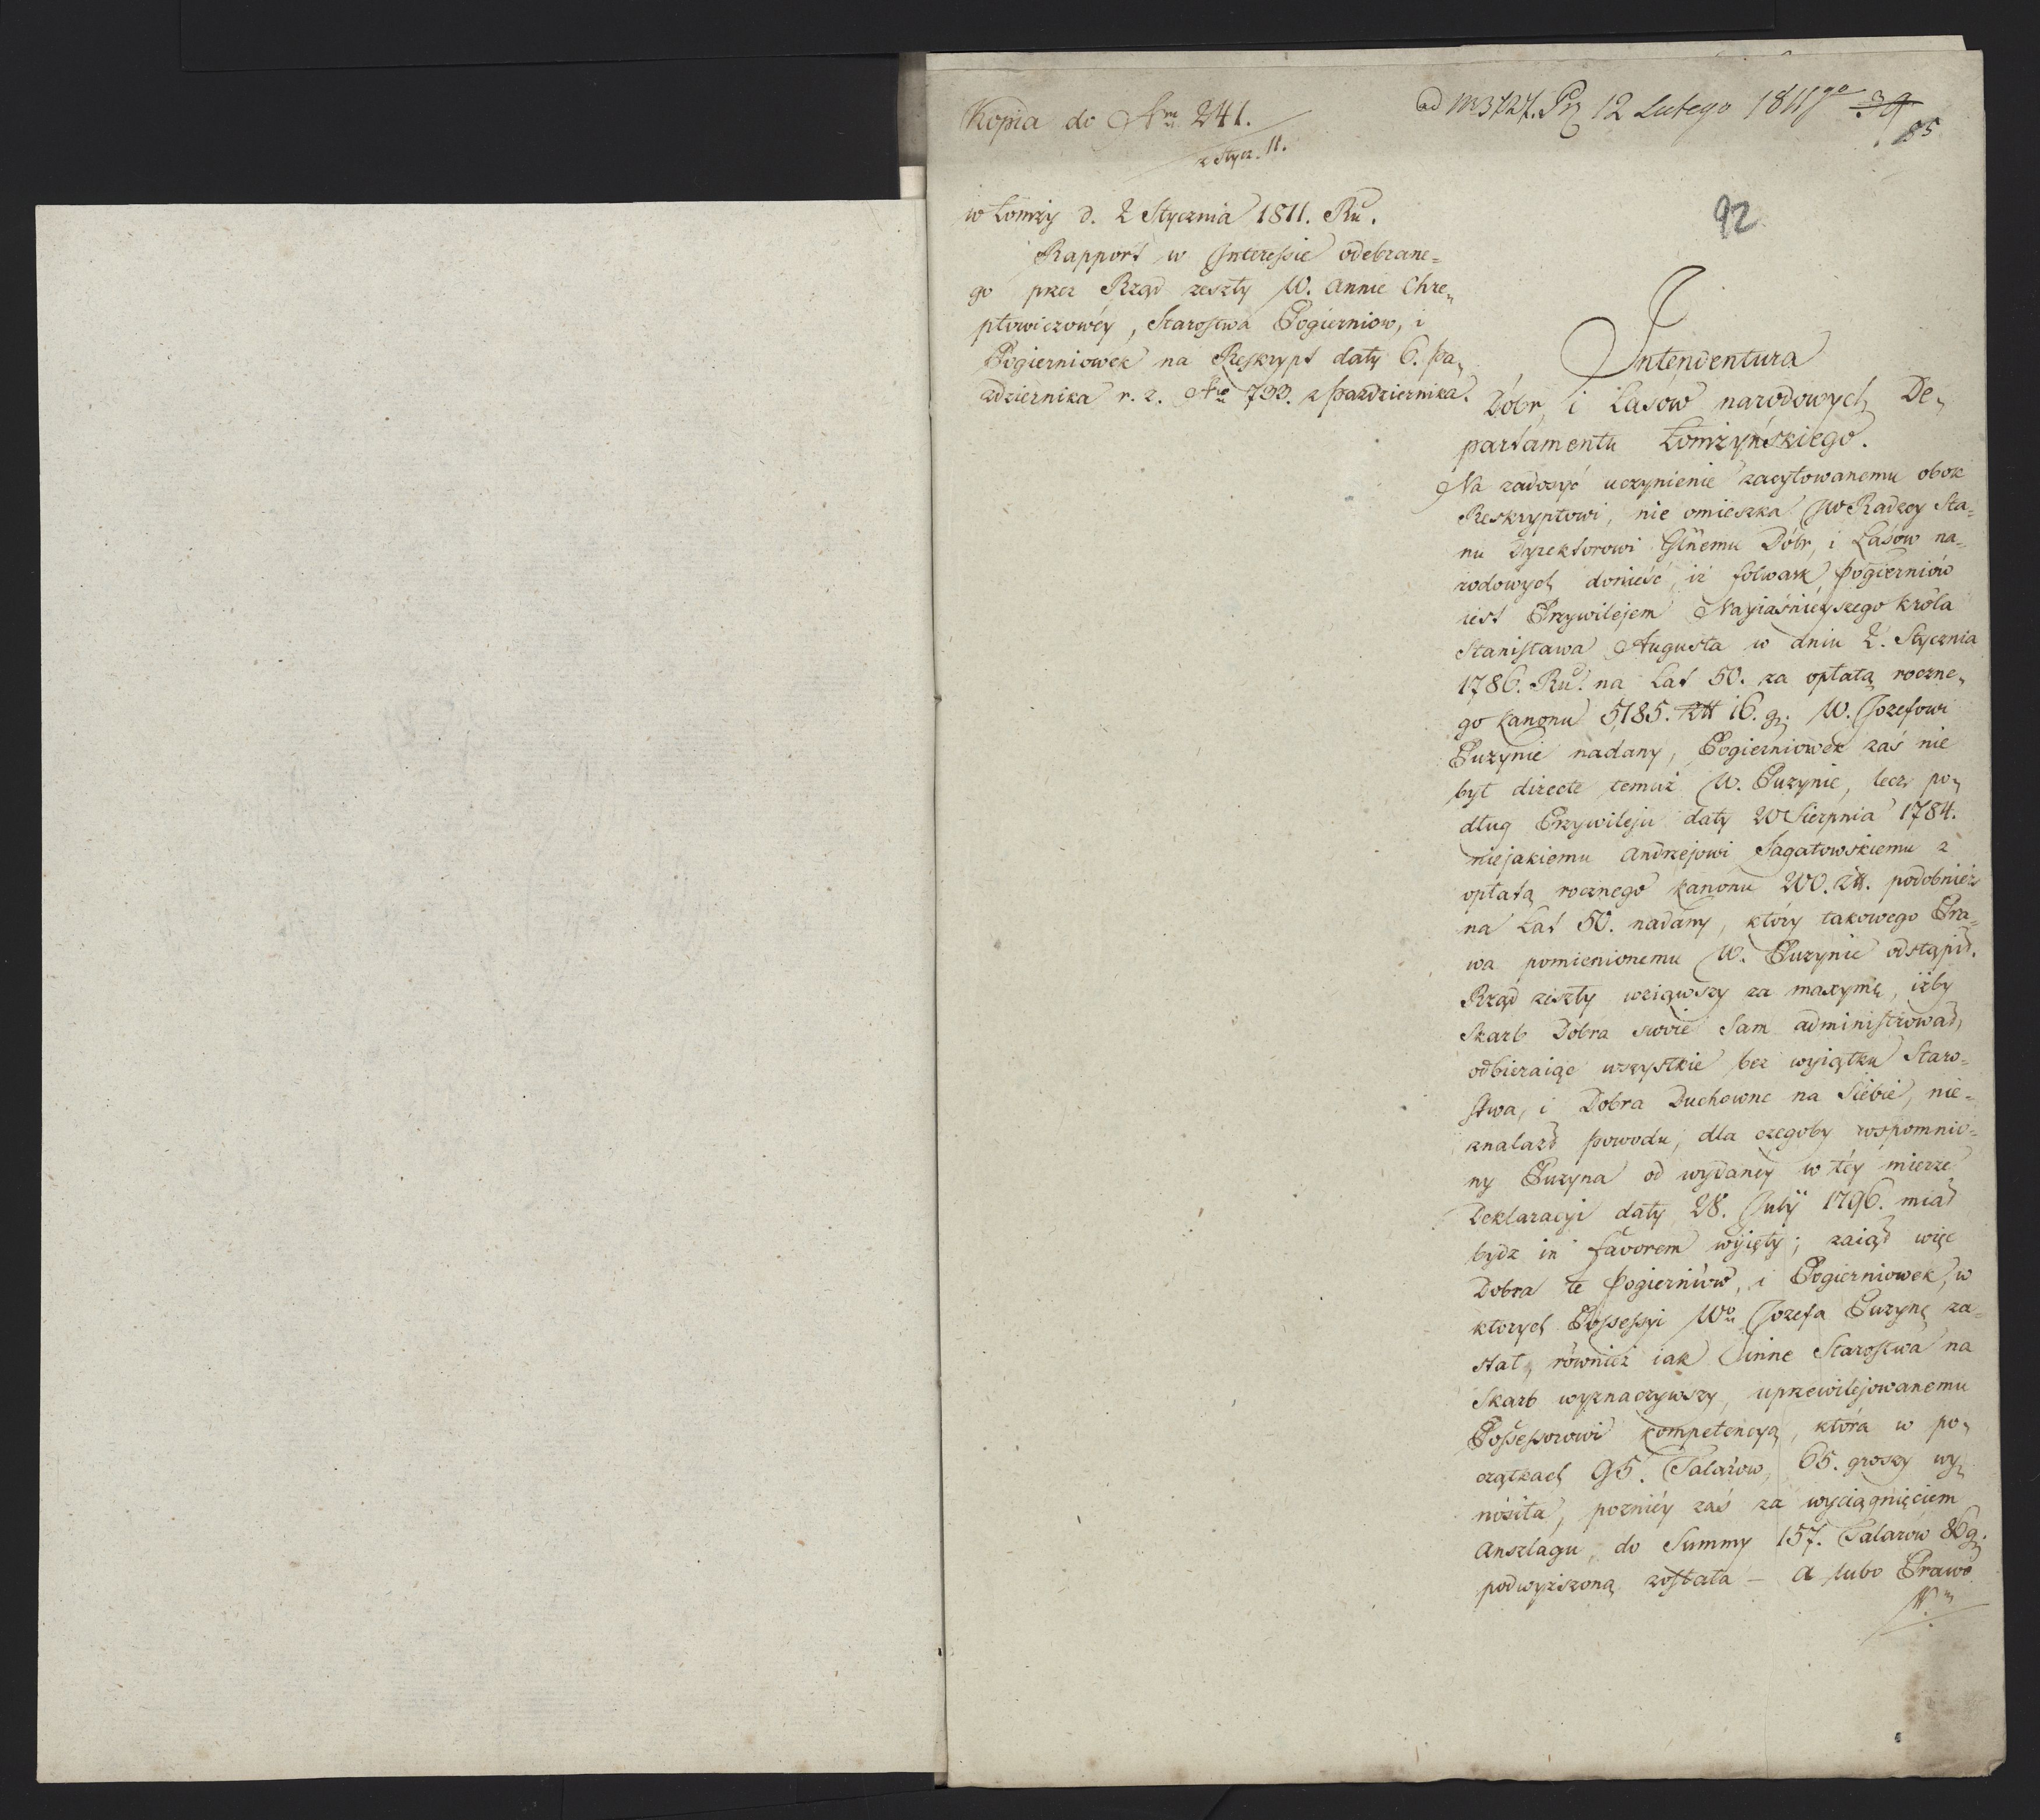 Kopia do Nru 241.
z Stycz. 11.
ad Nr 3727. Prz 12 Lutego 1811go
85
92
w Łomży d. 2 Stycznia 1811. Ru.
Rapport w Interessie odebrane=
go przez Rząd zeszły W. Annie Chre„
ptowiczowéy, Starostwa Pogierniow, i
Pogierniowek na Reskrypt daty 6. Pa„
zdziernika r. z. Nro 733. z Pazdziernika.
Intendentura
Dóbr i Lasów narodowych De„
partamentu Łomżyńskiego.
Na zadosyć uczynienie zacytowanemu obok
Reskryptowi, nie omieszka JW Radzcy Sta=
nu Dyrektorowi Glnemu Dóbr, i Lasów na=
rodowych donieść, iż folwark Pogierniów
iest Przywilejem Nayiaśniéyszego Króla
Stanisława Augusta w dniu 2. Stycznia
1786. Ru. na Lat 50. za opłatą roczne„
go Kanonu 5185. Złt 16. gr. W. Jozefowi
Puzynie nadany, Pogierniowek zaś nie
był directe temuż W. Puzynie, lecz po„
dług Przywileju daty 20 Sierpnia 1784.
niejakiemu Andrzejowi Sagatowskiemu z
opłatą rocznego Kanonu 200. Złt. podobnież
na Lat 50. nadany, który takowego Pra=
wa pomienionemu W. Puzynie odstąpił.
Rząd zeszły wziąwszy za maxymę, iżby
Skarb Dobra swoie Sam administrował,
odbieraiąc wszystkie bez wyiątku Staro=
stwa, i Dobra Duchowne na Siebie, nie=
znalazł powodu, dla czegoby wspomnio=
ny Puzyna od wydanéy w téy mierze
Deklaracyi daty 28. July 1796. miał
bydz in favorem wyięty; zaiął więc
Dobra te Pogierniów, i Pogierniowek, w
ktorych Possessyi Wo Jozefa Puzynę za=
stał, również iak inne Starostwa na
Skarb wyznaczywszy, uprzewilejowanemu
Possessorowi kompetencyą, która w po„
czątkach 95. Talarow, 65. groszy wy„
nosiła, poznićy zaś za wyciągnięciem
Anszlagu, do Summy 157. Talarów 86 g.
podwyższoną została – a lubo Prawo